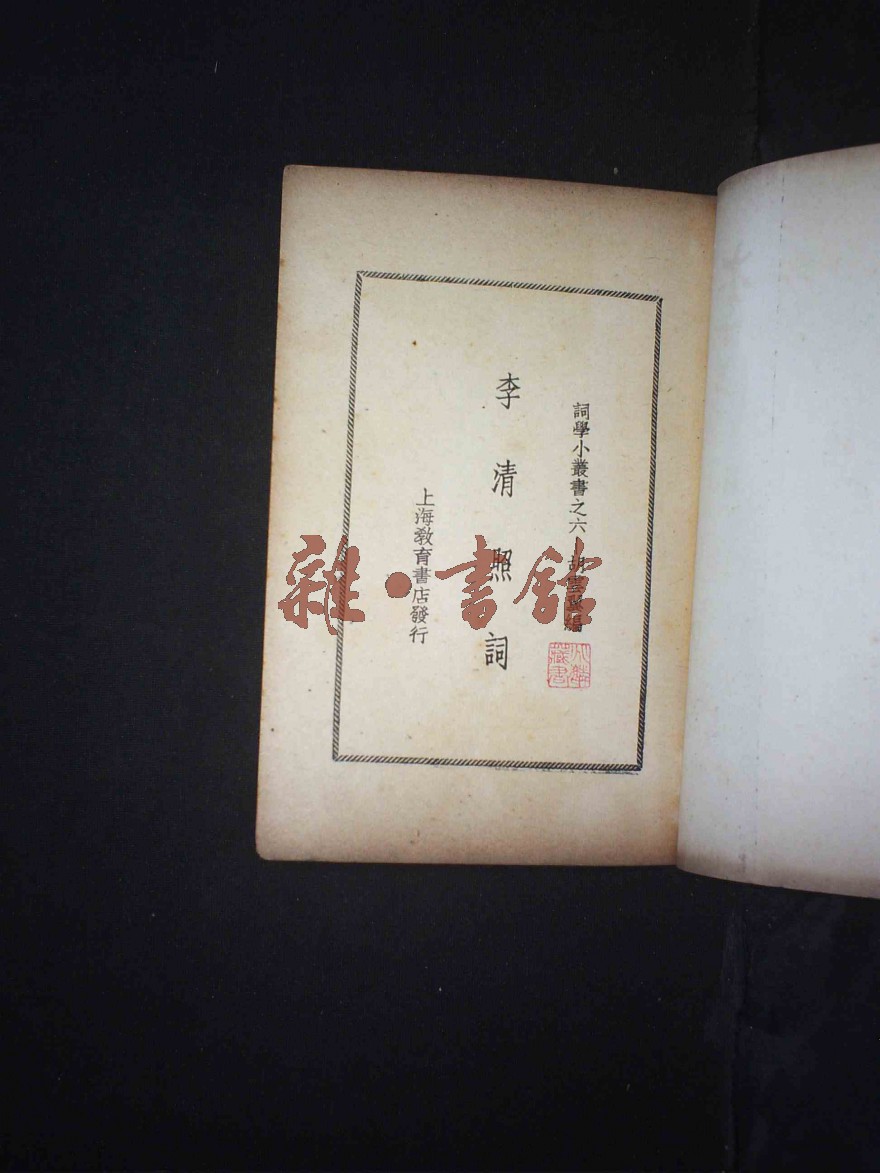 詞學小叢書之六 胡雲翼編
李清照詞
上海教育書店發行
雜·書館